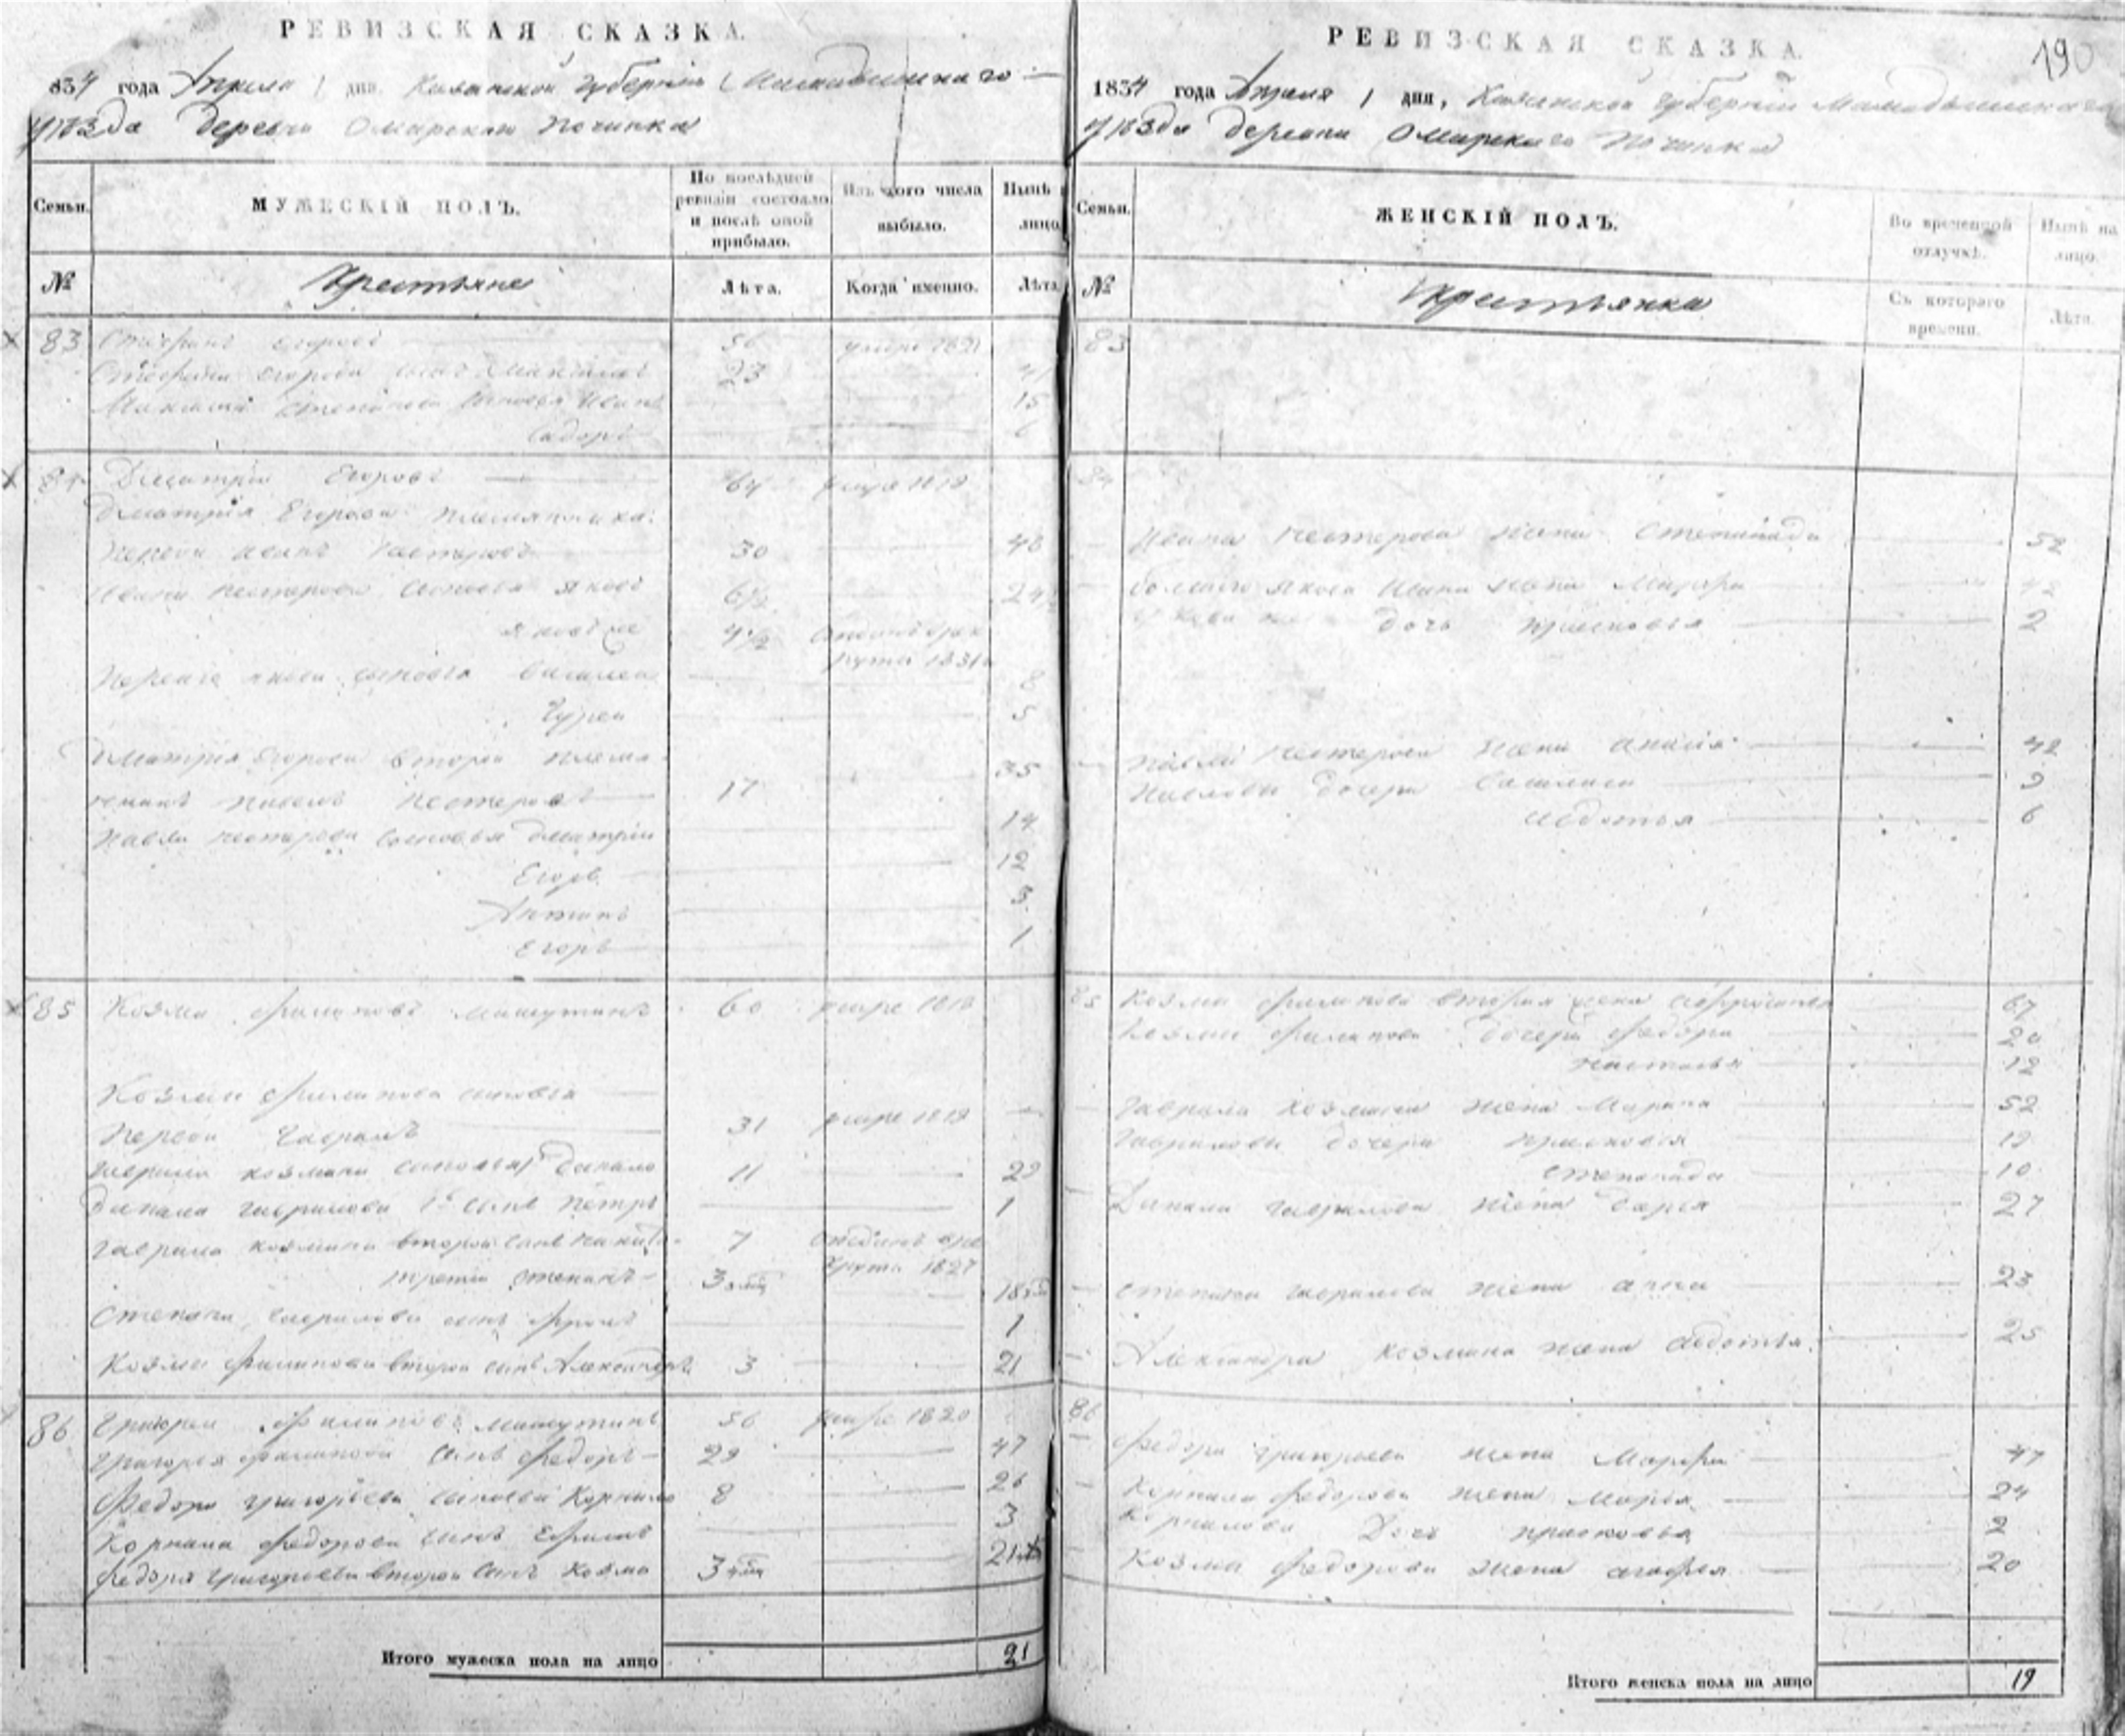 РЕВИЗСКАЯ СКАЗКА.
834 года Апреля 1 дня Казанской Губернии Мамадышскаго
уезда деревни Омарскаго Починка
Семьи.
МУЖЕСКІЙ ПОЛЪ.
По послѣдней ревизіи состояло и послѣ оной прибыло.
Изъ того числа выбыло.
Нынѣ лицо
№
Крестьяне
Лѣта.
Когда именно.
Лѣта
83 Степанъ Егоровъ 56 умре 1821
Степана Егорова сынъ Максимъ 23 41
Максима Степанова сыновья Иванъ 15
Сидоръ 6
84 Дмитрій Егоровъ 64 умре 1818
Дмитрія Егорова племянники:
первой Иванъ Нестеровъ 30 48
Ивана Нестерова сыновья Яковъ 6½ 24½
Яковъ же 4½ отданъ в рек
руты 1831
перваго Якова сыновья Василей 8
Гурей 5
Дмитрія Егорова второй племя
ненникъ Павелъ Нестеровъ 17 35
Павла Нестерова сыновья Дмитрій 14
Егоръ 12
Антонъ 3
Егоръ 1
85 Козма Филиповъ Мишутинъ 60 умре 1818
Козмы Филипова сыновья
первой Гаврилъ 31 умре 1819
Гаврила Козмина сыновья Данило 11 29
Данила Гаврилова 1й сынъ Петръ 1
Гаврила Козмина второй сынъ Никита 7 отданъ в рек
руты 1827
третій Степанъ 3 18
Степана Гаврилова сынъ Фролъ 1
Козмы Филипова второй сынъ Александръ 3 21
86 Григорей Филиповъ Мишутинъ 56 умре 1820
Григорья Филипова сынъ Федоръ 29 47
Федора Григорьева сыновья Корнило 8 26
Корнила Федорова сынъ Ефимъ 3
Федора Григорьева второй сынъ Козма 3 21
Итого мужеска пола на лицо 21
190
РЕВИЗСКАЯ СКАЗКА.
1834 года Апреля 1 дня, Казанской Губерніи Мамадышскаго
уезда деревни Омарскаго Починка
Семьи.
ЖЕНСКІЙ ПОЛЪ.
Во временной отлучкѣ.
Нынѣ на лицо.
№
Крестьянки
Съ котораго времени.
Лѣта.
83
84
Ивана Нестерова жена Степанида 52
Большаго Якова Иванова жена Марфа 42
Якова дочь Прасковья 2
Павла Нестерова жена 42
Павловы дочери Василиса 9
Авдотья 6
85 Козмы Филипова вторая жена Афросинья 67
Козмы Филипова дочери Федора 20
Настасья 12
Гаврила Козмина жена Марина 52
Гавриловы дочери Прасковья 12
Степанида 10
Данила Гаврилова жена Дарья 27
Степана Гаврилова жена Анна 23
Александра Козмина жена Авдотья 25
86
Федора Григорьева жена Марфа 47
Корнила Федорова жена Марья 24
Корнилова дочь Прасковья 2
Козмы Федорова жена Агафья 20
Итого женска пола на лицо 19